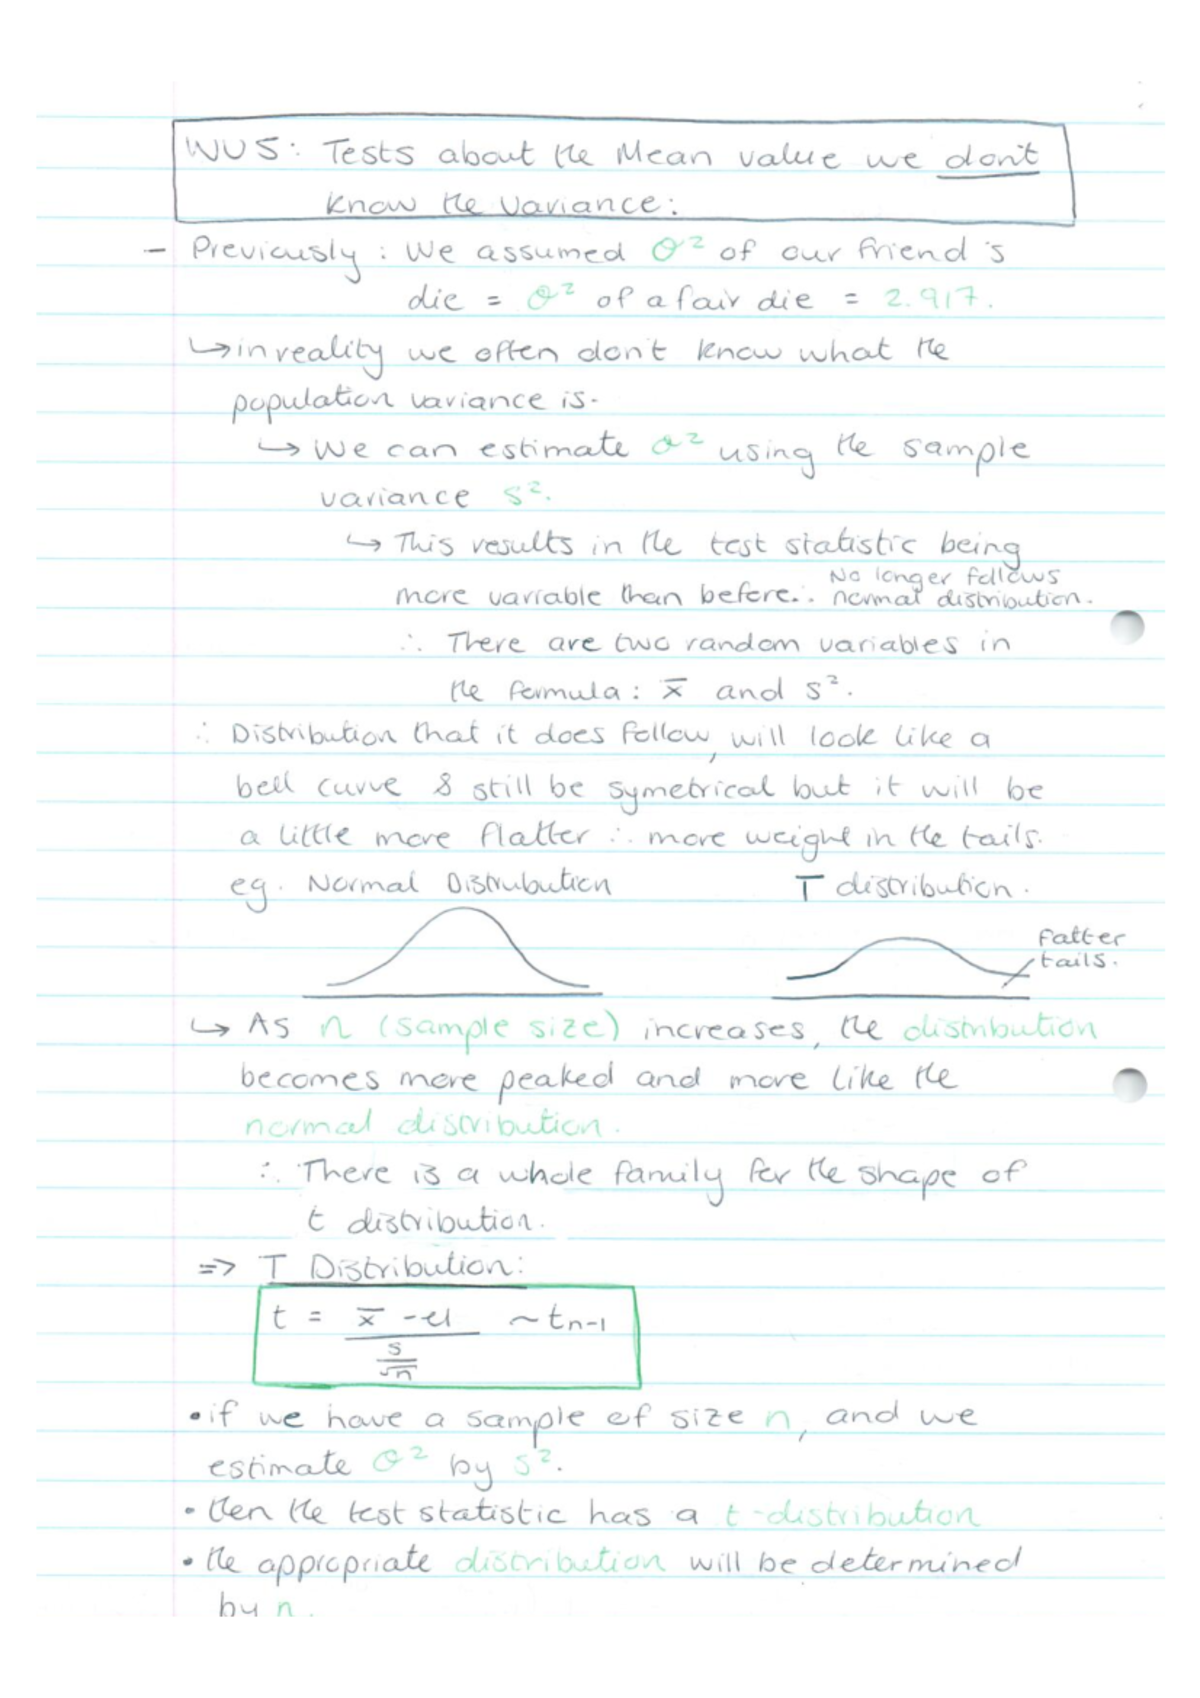 WU5: Tests about the Mean value we don't
know the variance:
– Previously: We assumed σ² of our friend's
die = σ² of a fair die = 2.917.
↳ in reality we often don't know what the
population variance is.
↳ We can estimate σ² using the sample
variance s².
↳ This results in the test statistic being
more variable than before. ∴ No longer follows
normal distribution.
∴ There are two random variables in
the formula: x̄ and s².
∴ Distribution that it does follow, will look like a
bell curve & still be symetrical but it will be
a little more flatter ∴ more weight in the tails.
eg. Normal Distrubution T distribution.
Fatter
tails.
↳ As n (sample size) increases, the distribution
becomes more peaked and more like the
normal distribution.
∴ There is a whole family for the shape of
t distribution.
=> T Distribution:
t = x̄ - μ ~ tn-1
s
√n
• if we have a sample of size n, and we
estimate σ² by s².
• then the test statistic has a t-distribution
• the appropriate distribution will be determined
by n.